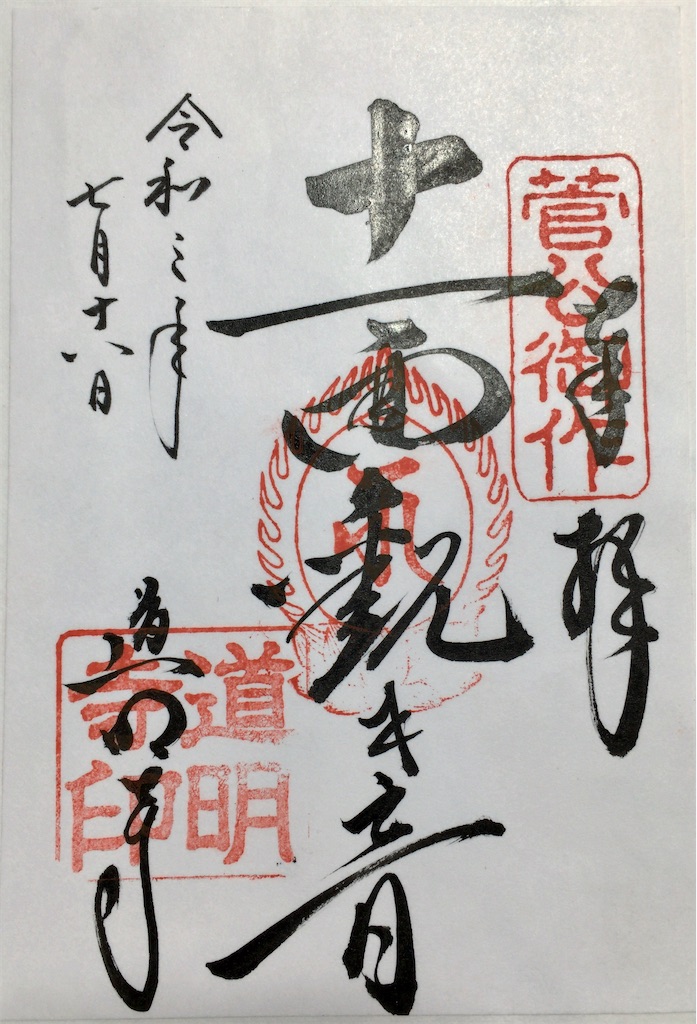 菅公御作
奉拝
十一面観世音
令和三年
七月十八日
道明寺
道明
寺印